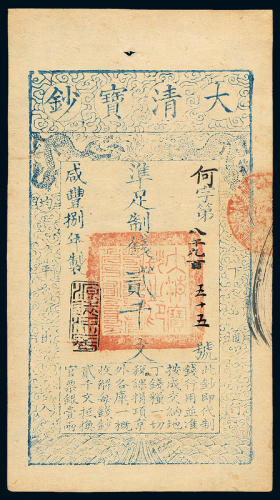 大清寶鈔
何字第八千九百五十五號
準足制錢貳千文
咸豐捌年製
此鈔即代制
錢行用並准
按成交納地
丁錢糧一切
稅課捐項京
外各庫一概
收解每錢鈔
貳千文抵換
官票銀壹兩